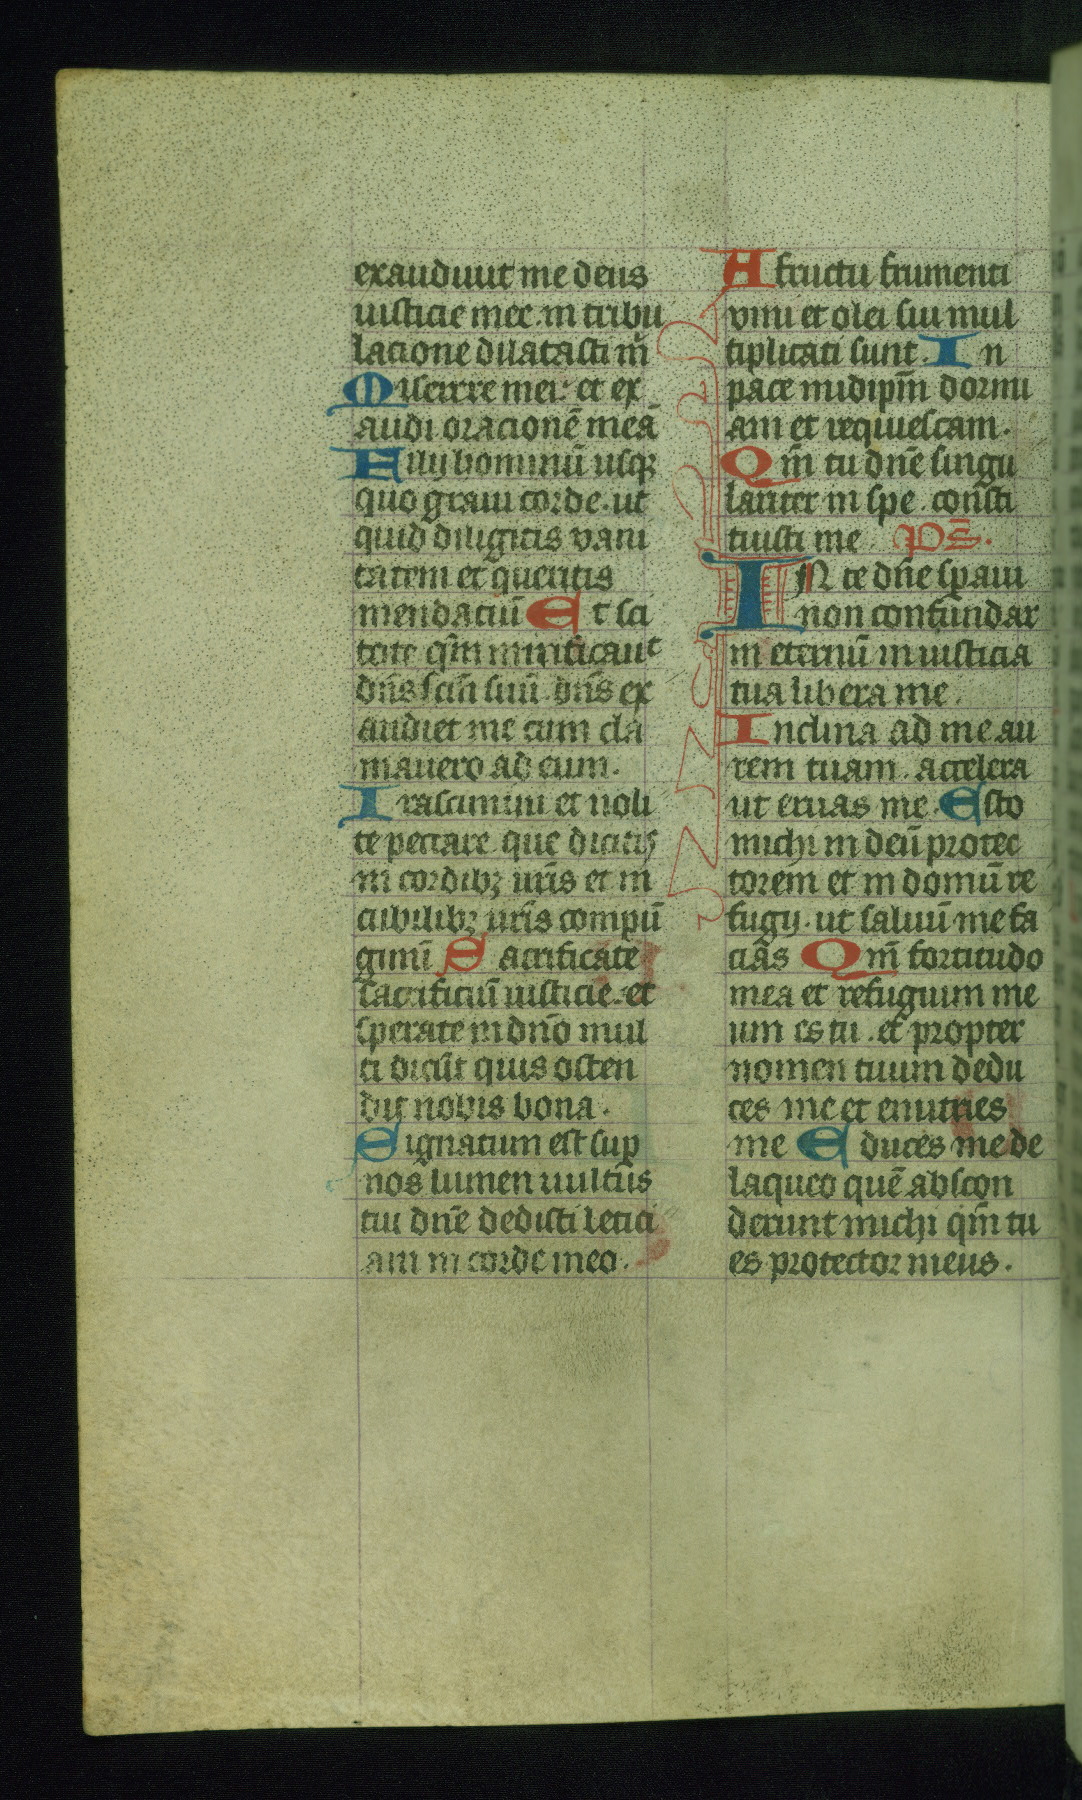 exaudiuit me deus
iusticie mee. in tribu
lacione dilatasti m̄
Miserere mei: et ex
audi oracionē meā
Filij hominū usq̄
quo graui corde. ut
quid diligitis vani
tatem et queritis
mendaciū Et sci
tote qm̄ mirificauit
dn̄s sc̄m suū dn̄s ex
audiet me cum cla
mauero ad eum.
Irascimini et noli
te peccare que dicitis
in cordibꝫ ur̄is et in
cubilibꝫ ur̄is compū
gimī Sacrificate
sacrificiū iusticie. et
sperate in dn̄o mul
ti dicūt quis osten
dit nobis bona.
Signatum est sup
nos lumen uultus
tui dn̄e dedisti letici
am in corde meo.
A fructu frumenti
vini et olei sui mul
tiplicati sunt. In
pace in idip̄m dormi
am et requiescam.
Qm̄ tu dn̄e singu
lariter in spe. consti
tuisti me PS̄.
IN te dn̄e sp̄aui
non confundar
in eternū in iusticia
tua libera me.
Inclina ad me au
rem tuam. accelera
ut eruas me. Esto
michi in deū protec
torem et in domū re
fugij. ut saluū me fa
cias Qm̄ fortitudo
mea et refugium me
um es tu. et propter
nomen tuum dedu
ces me et enutries
me Educes me de
laqueo quē abscon
derunt michi qm̄ tu
es protector meus.